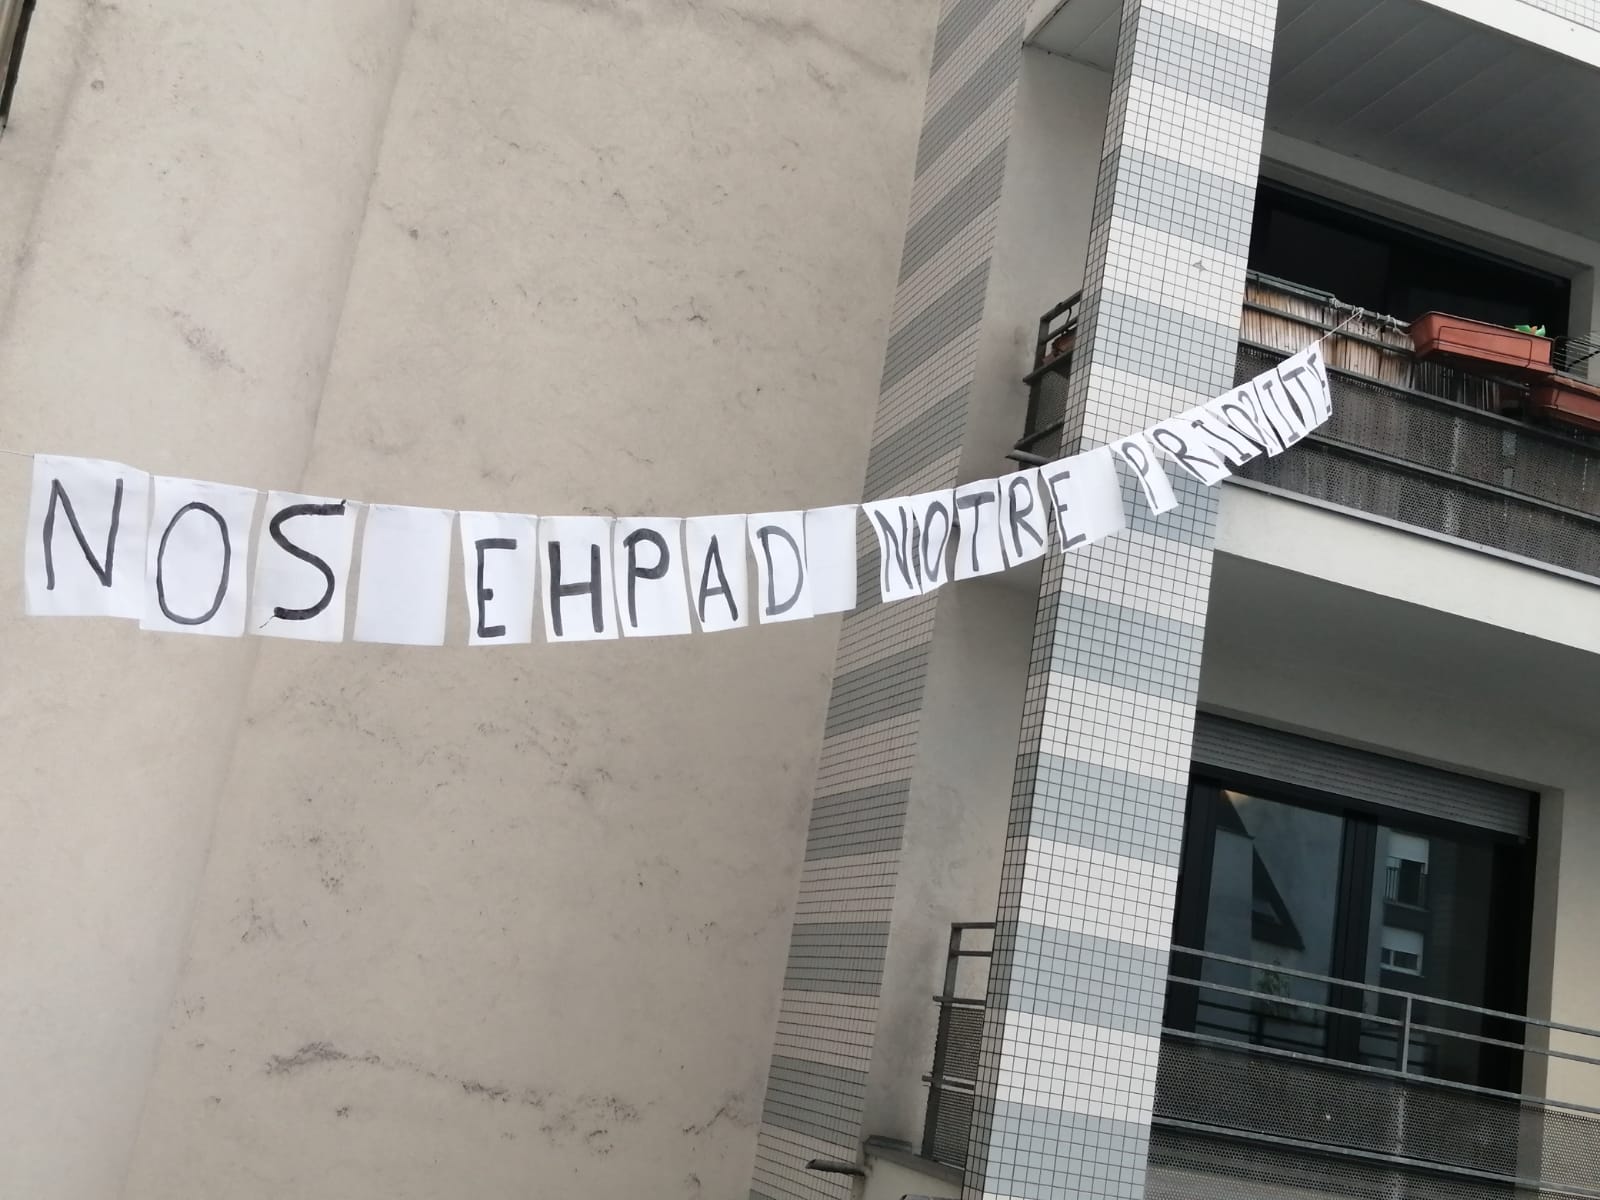 NOS EHPAD NOTRE PRIORITE